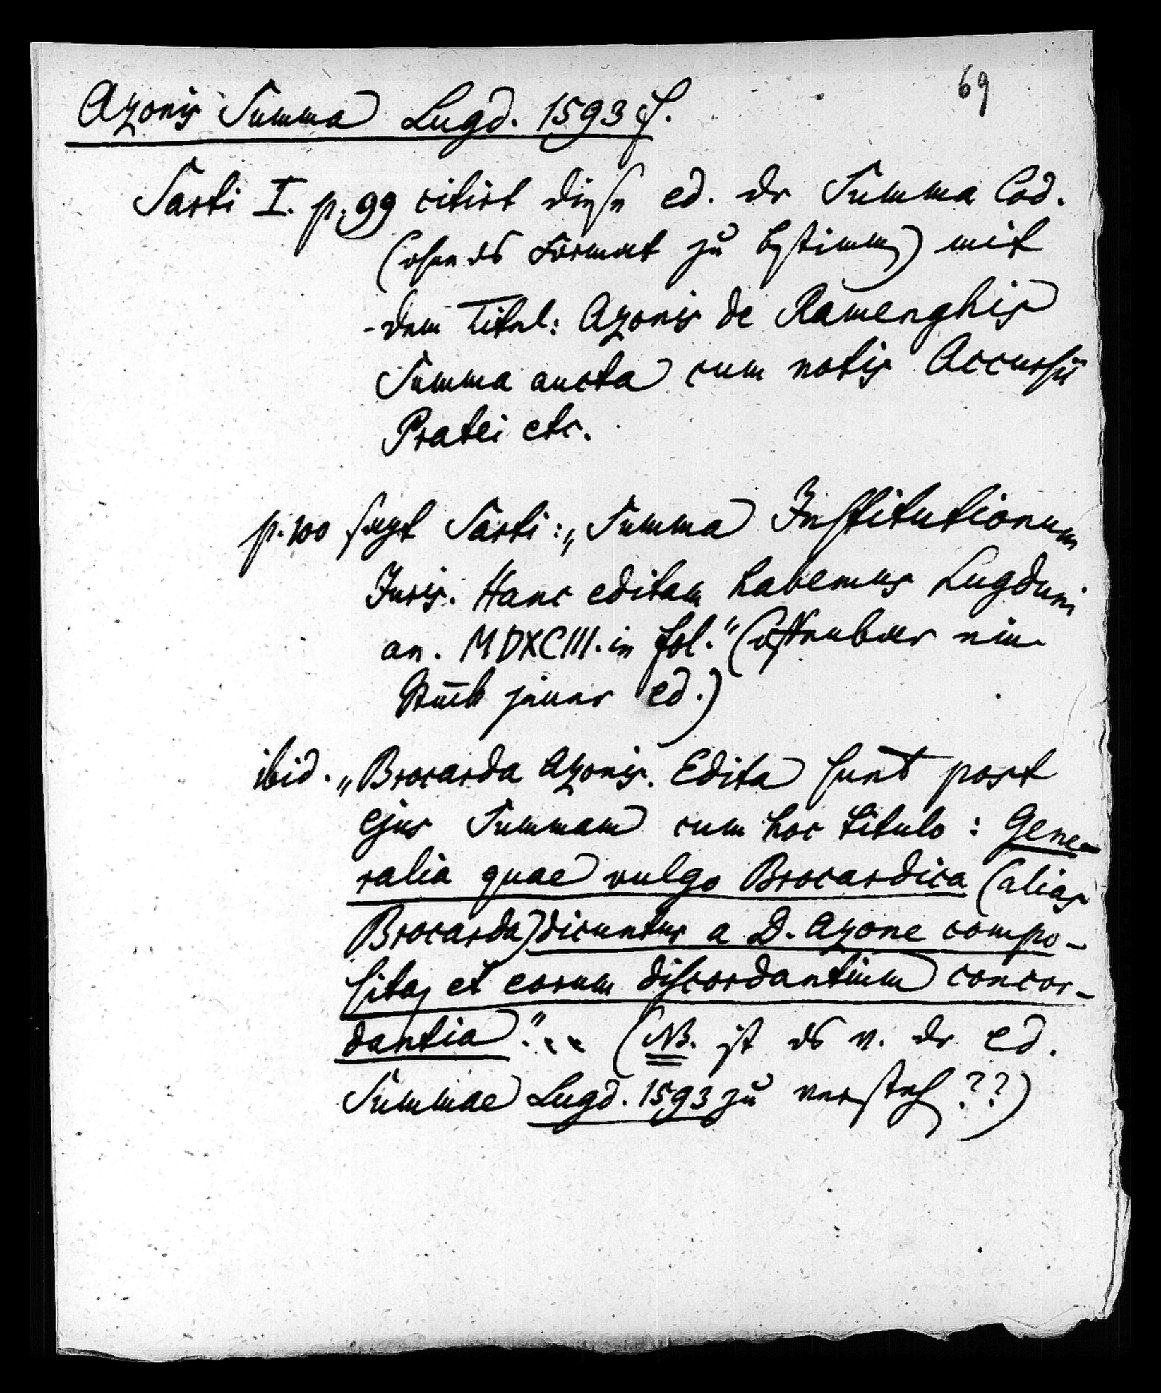 69
Azonis Summa Lugd. 1593 f.
Sarti I. p. 99 citirt diese ed. dr Summa Cod.
(ohne ds Format zu bestimmen) mit
dem Titel: Azonis de Ramenghis
Summa aucta cum notis Accursii
Pratei etc.
p. 100 sagt Sarti: „Summa Institutionum
Juris. Hanc editam habemus Lugduni
an. MDXCIII. in fol.“ (offenbar ein
Stück jener ed.)
ibid. „Brocarda Azonis. Edita sunt post
ejus Summam cum hoc titulo: Gene-
ralia quae vulgo Brocardica (alias
Brocarda) dicuntur a D. Azone compo-
sita, et eorum discordantium concor-
dantia“. (NB. ist ds v. dr ed.
Summae Lugd. 1593 zu versteh??)